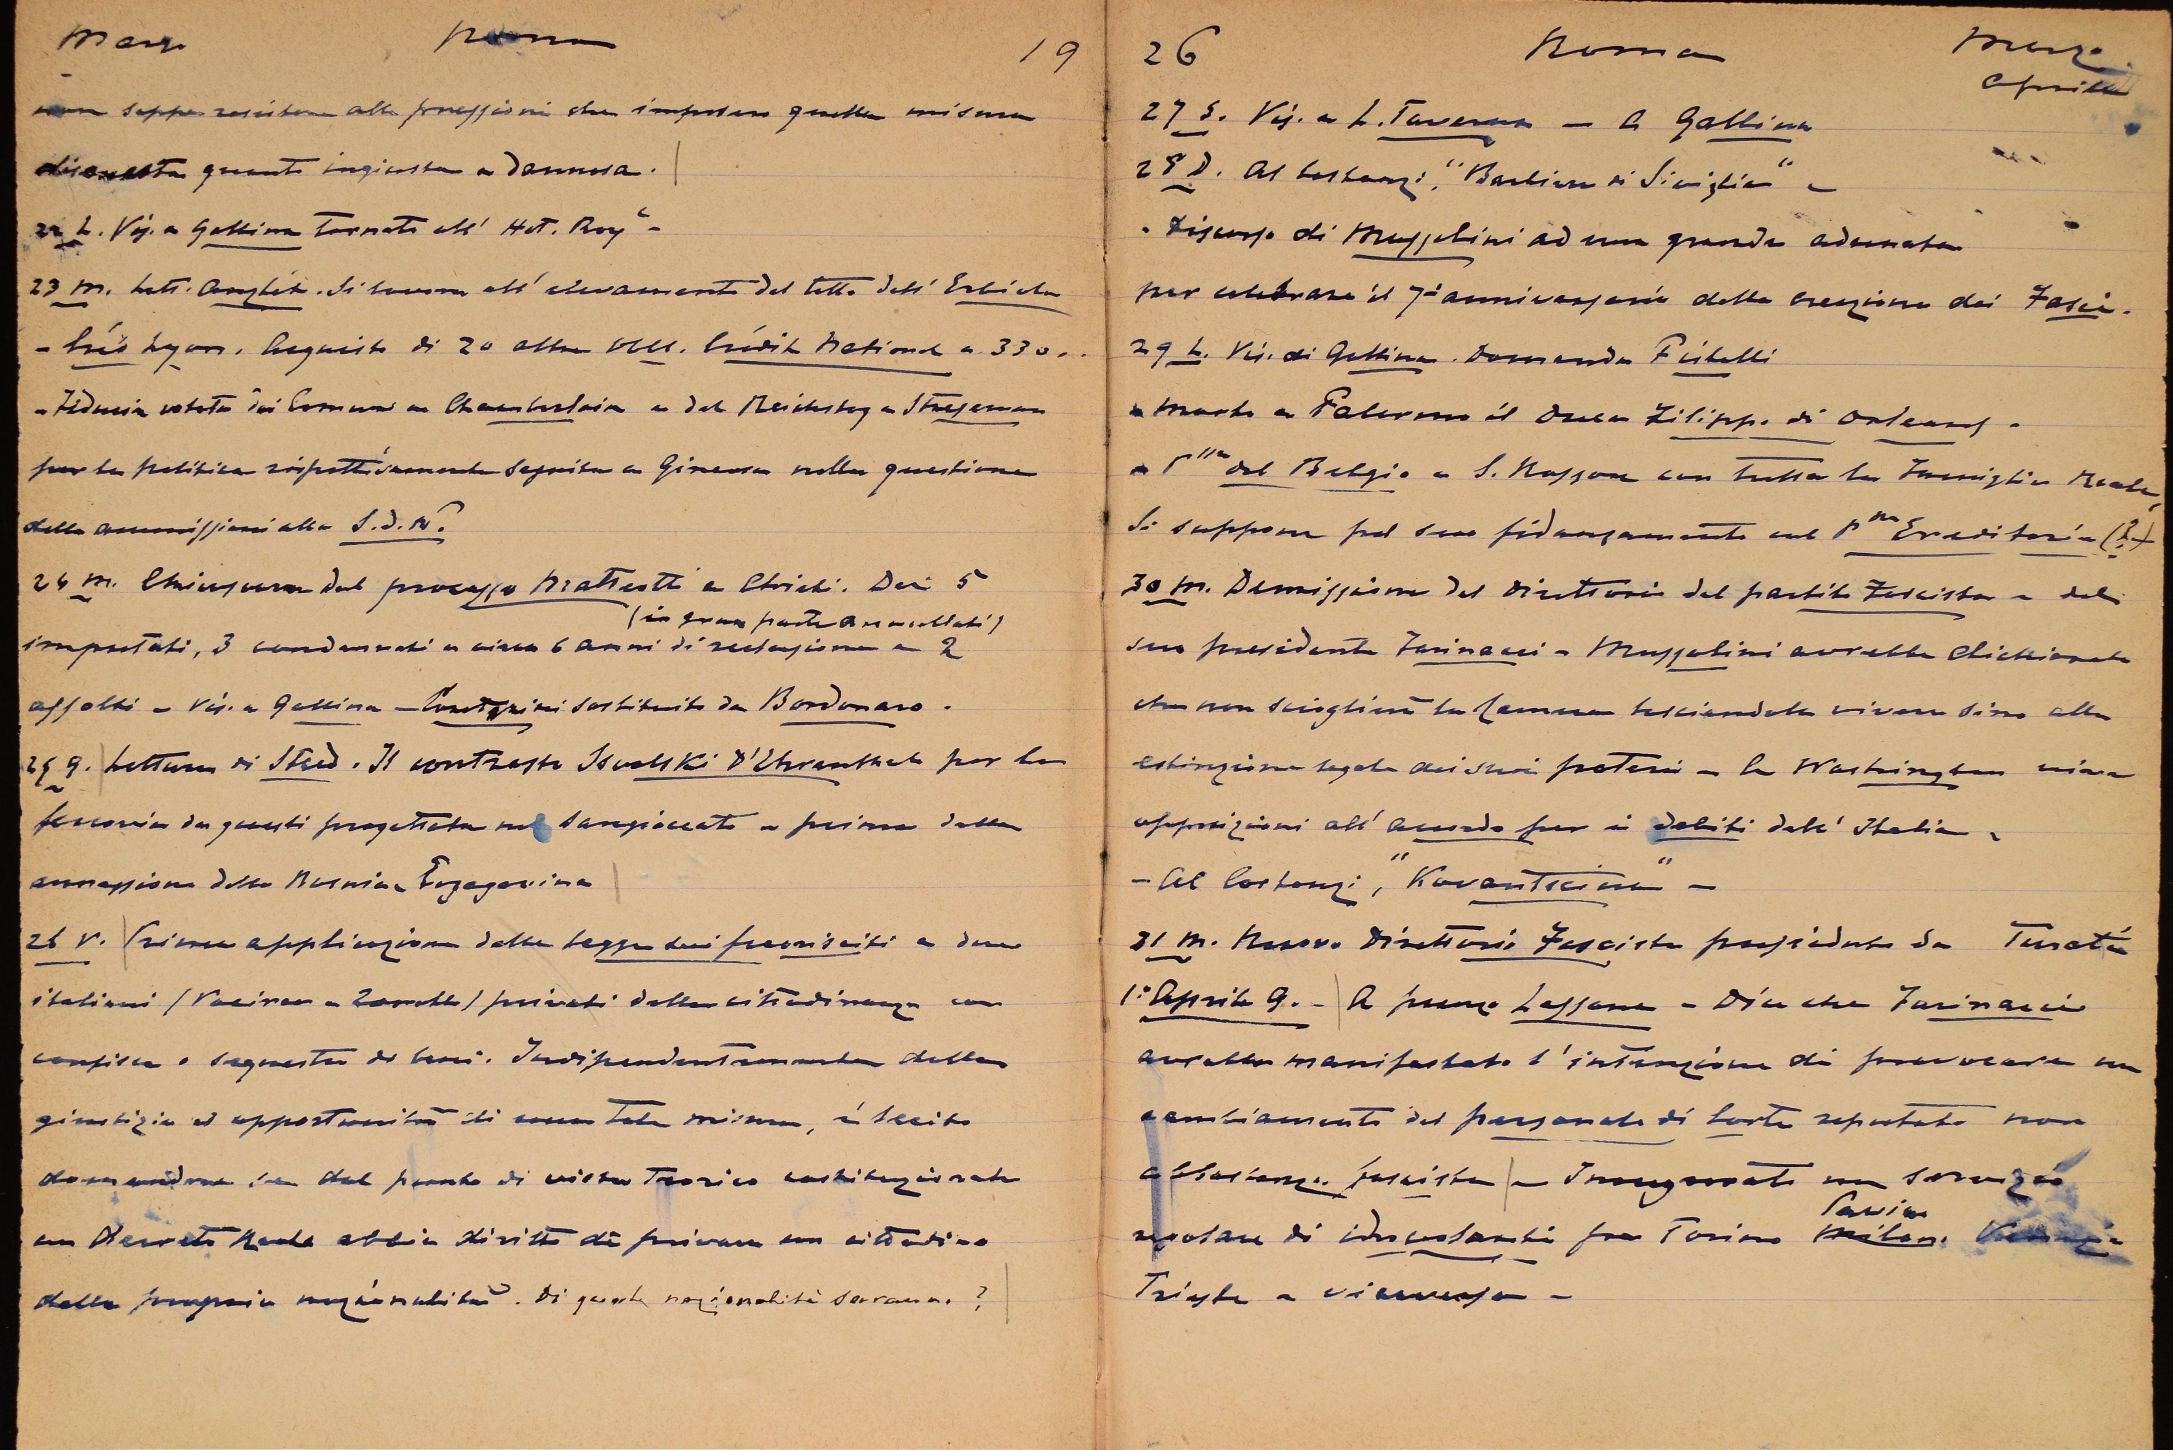 Marzo Roma 19
non seppe resistere alle pressioni che imposero quella misura
disonesta quanto ingiusta e dannosa.
22 L. Vis. a Gallina tornato all' Hot. Roy"-
23 M. Lett. Anglét. Si lavora all' elevamento del tetto dell'
- Créd Lyon. Acquisto di 20 altre Crédit National a 330..
- Fiducia votata dai Comuni a Chamberlain e dal Reichstag a Stresemann
per la politica rispettivamente seguita a Ginevra nella questione
delle ammissioni alla S.d.N.
24 M. Chiusura del processo Matteotti a Chieti. Dei 5
(in gran parte cancellati)
imputati, 3 condannati a circa 6 anni di reclusione e 2
assolti - Vis. a Gallina - sostituito da Bordonaro.
25 G. Lettura di Steed. Il contrasto Isvolski D'Ehrenthal per la
ferrovia da questi progettata nel Sangiaccato e prima della
annessione della Bosnia Erzegovina
26 V. Prima applicazione della legge sui fuorusciti a due
italiani (Vacirca e) privati della cittadinanza con
confisca o sequestro di beni. Indipendentemente dalla
giustizia ed opportunità di una tale misura, è lecito
domandare se dal punto di vista teorico costituzionale
un Decreto Reale abbia diritto di privare un cittadino
della propria nazionalità. Di quale nazionalità saranno?
26 Roma Marzo
Aprile
27 S. Vis. a L. Taverna - A Gallina
28 D. Al Costanzi, "Barbiere di Siviglia" -
- Discorso di Mussolini ad una grande adunata
per celebrare il 7° anniversario della creazione dei Fasci.
29 L. Vis. di Gallina. Domanda
- Morto a Palermo il Duca Filippo di Orleans.
- P.ssa del Belgio a S. Rossore con tutta la Famiglia Reale,
Si suppone pel suo fidanzamento col P. Ereditario (?)
30 M. Demissione del Direttorio del partito Fascista e del
suo presidente Farinacci - Mussolini avrebbe dichiarato
che non scioglierà la Camera lasciandola vivere sino alla
estinzione legale dei suoi poteri - A Washington viva
opposizioni all' accordo per i debiti dell' Italia -
- Al Costanzi, "Kovantscina" -
31 M. Nuovo Direttorio Fascista presieduto da Turati
1° Aprile G. - A pranzo Lessona - Dice che Farinacci
avrebbe manifestato l'intenzione di provocare un
cambiamento del personale di Corte reputato non
abbastanza fascista - Inaugurato un servizio
Pavia
regolare di idrovolanti fra Torino Milano Venezia
Trieste e viceversa -